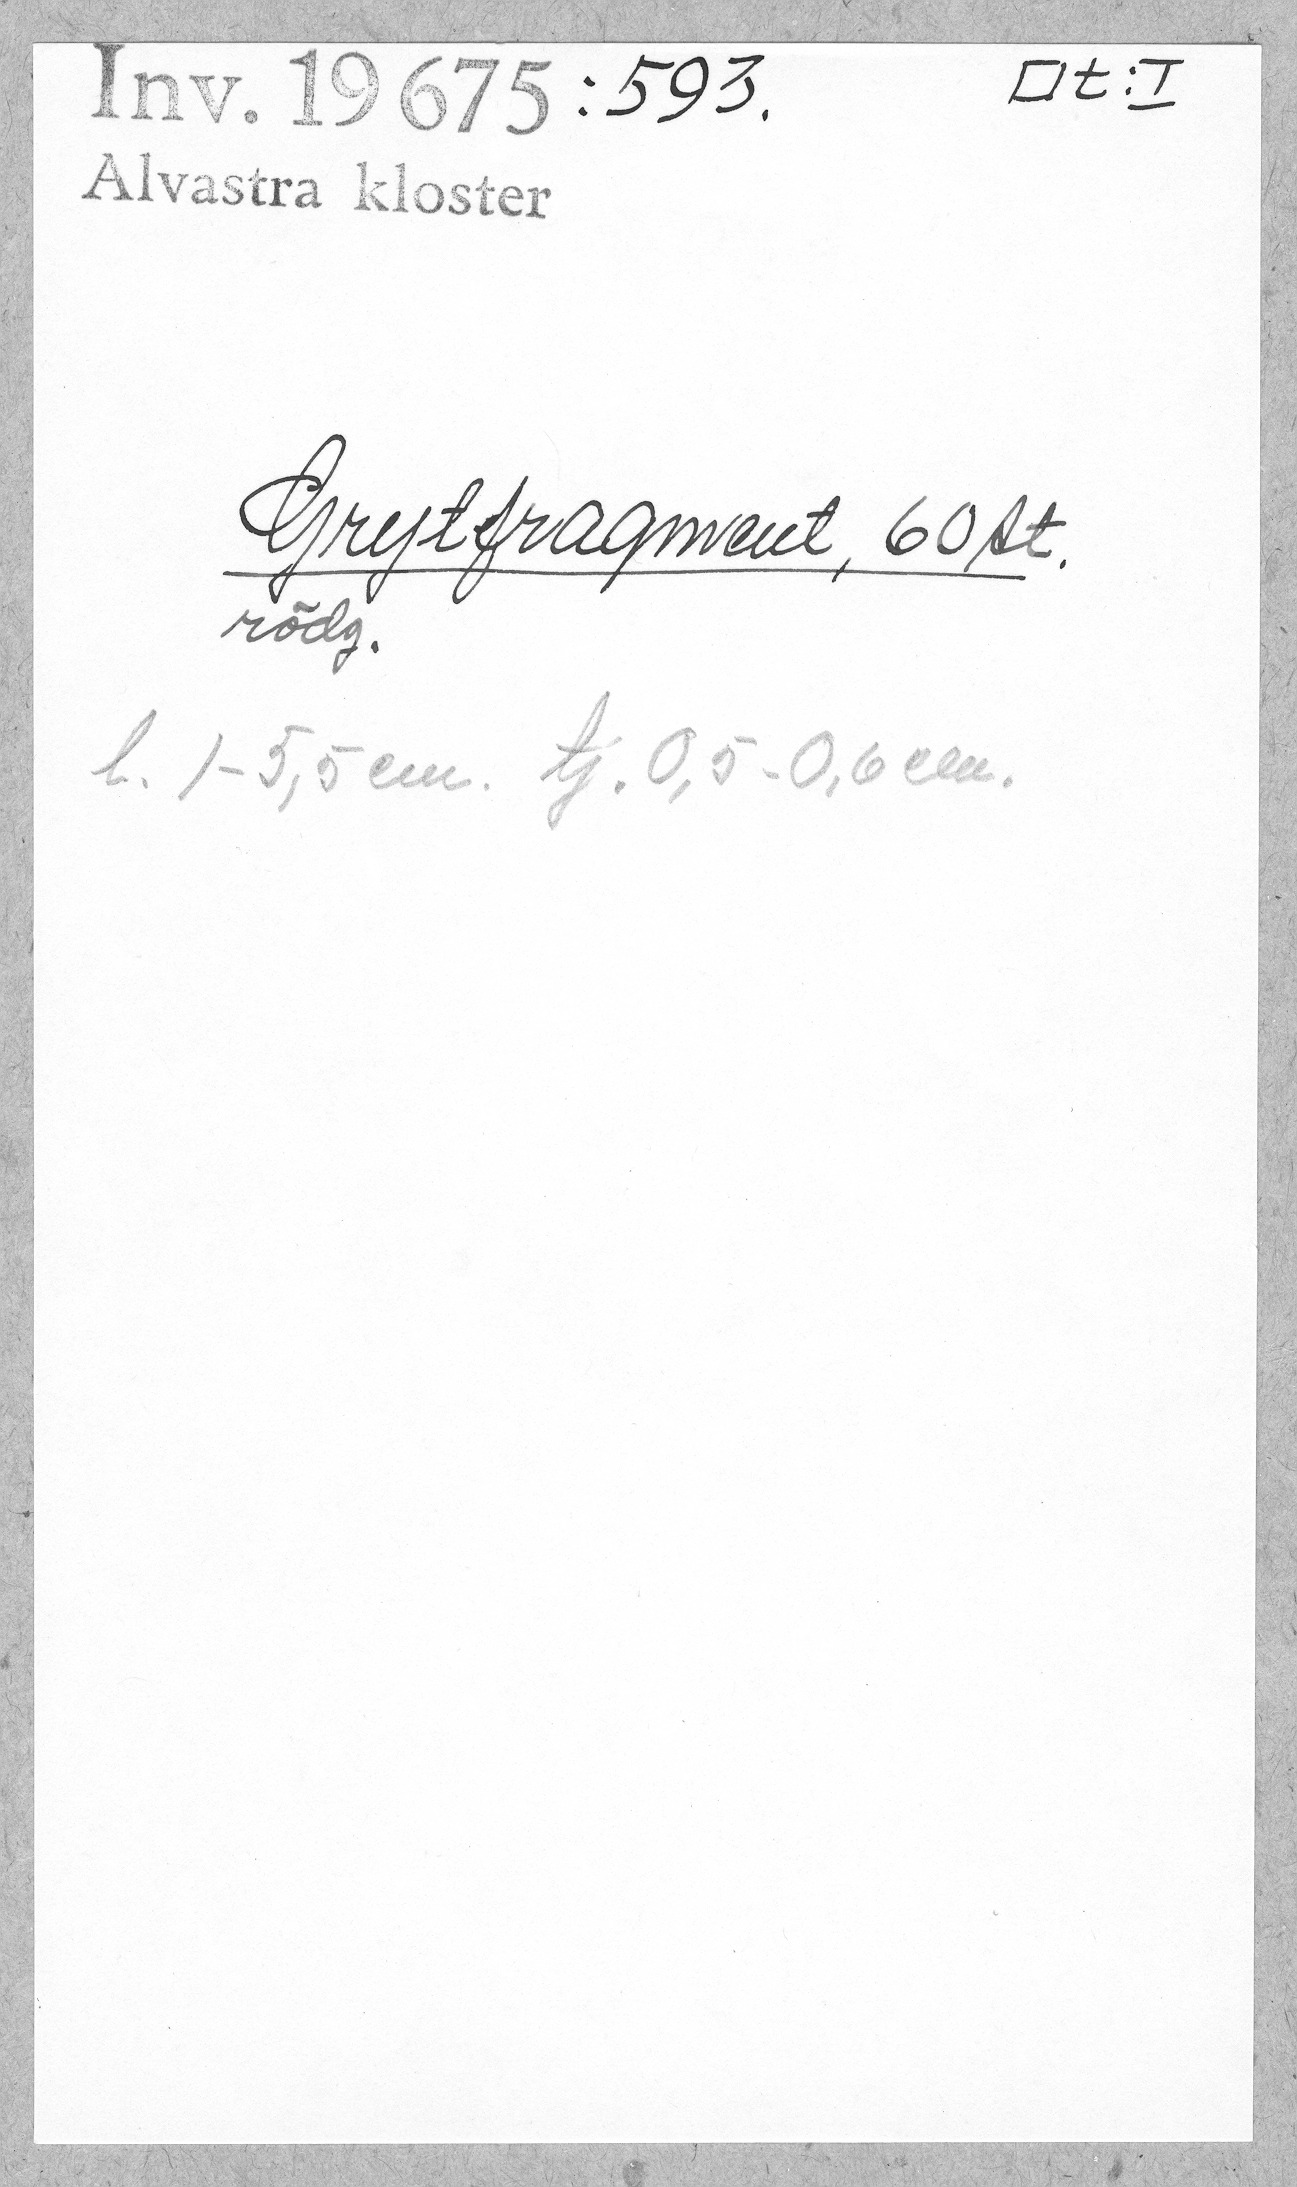 Inv. 19 675 :593. □t:I
Alvastra kloster
Grytfragment, 60 st.
rödg.
l. 1-5,5 cm. tj. 0,5-0,6 cm.